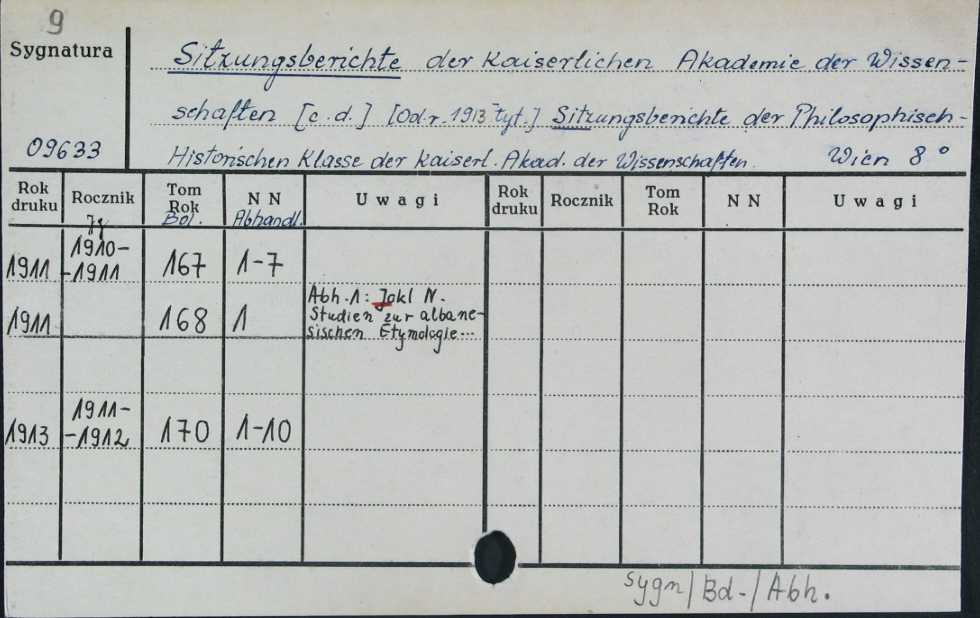 9
Sygnatura
Sitzungsberichte der Kaiserlichen Akademie der Wissen-
schaften [c.d.] [Od r. 1913 tyt.] Sitzungsberichte der Philosophisch-
09633
Historischen Klasse der Kaiserl. Akad. der Wissenschaften. Wien 8°
Rok druku Rocznik Tom Rok N N Uwagi Rok druku Rocznik Tom Rok N N Uwagi
Jg. Bd. Abhandl.
1911 1910-
-1911 167 1-7
1911 168 1 Abh. 1: Jokl N.
Studien zur albane-
sischen Etymologie...
1913 1911-
-1912 170 1-10
sygn/Bd-/Abh.